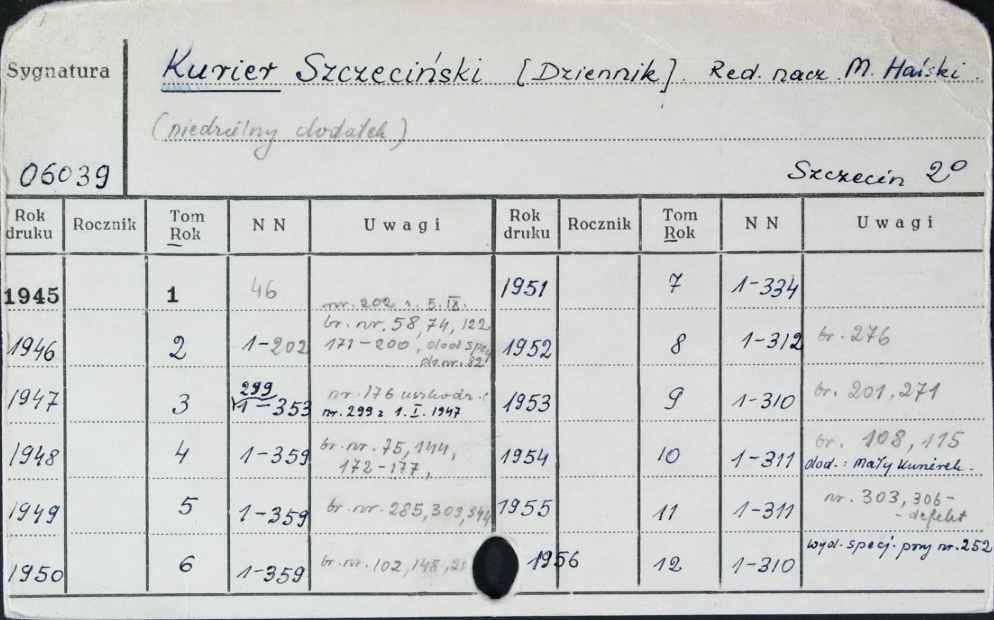 Sygnatura
Kurier Szczeciński [Dziennik]. Red. nacz. M. Hański.
(niedzielny dodatek)
06039
Szczecin 2º
Rok druku Rocznik Tom Rok NN Uwagi Rok druku Rocznik Tom Rok NN Uwagi
1945 1 46
nr. 202 z 5.IX.
1946 2 1-202 br. nr. 58, 74, 122
171-200, dod. spec.
do nr. 82
1947 3 299 1-353 nr. 176 uszkodz.
nr. 299 z 1.I.1947
1948 4 1-359 br. nr. 75, 144,
172-177,
1949 5 1-359 br. nr. 285, 303, 344
1950 6 1-359 br. nr. 102, 148,
1951 7 1-334
1952 8 1-312 br. 276
1953 9 1-310 br. 201, 271
1954 10 1-311 br. 108, 115
dod.: Mały Kurierek.
1955 11 1-311 nr. 303, 306-
- defekt
1956 12 1-310 wyd. specj. przy nr. 252